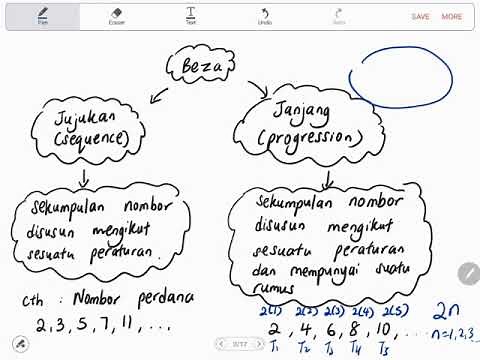 Pen Eraser Text Undo Redo SAVE MORE
Beza
Jujukan
(sequence)
Janjang
(progression)
sekumpulan nombor
disusun mengikut
sesuatu peraturan.
sekumpulan nombor
disusun mengikut
sesuatu peraturan
dan mempunyai suatu
rumus
cth : Nombor perdana
2, 3, 5, 7, 11, ...
2(1) 2(2) 2(3) 2(4) 2(5) 2n
2, 4, 6, 8, 10, ... n=1,2,3
T1 T2 T3 T4 T5